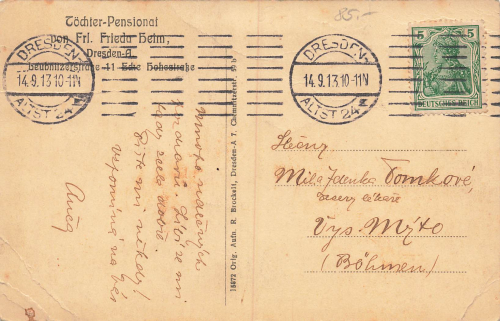 Töchter-Pensionat
von Frl. Frieda Heim,
Dresden-A.
Leubnitzerstraße 11 Ecke Hohestraße
85.-
DRESDEN
14.9.13.10-11N
ALTST. 24
DRESDEN
14.9.13.10-11N
ALTST. 24
5 5
DEUTSCHES REICH
mnoho
Líbí se mi
zde dobře.
Piš mi někdy!
Vzpomíná na
15872 Orig. Aufn. R. Brockelt, Dresden-A 7, Chemnitzerstr.
Slečny
Mila Zdenka Tomkové,
Vys. Mýto
(Böhmen)